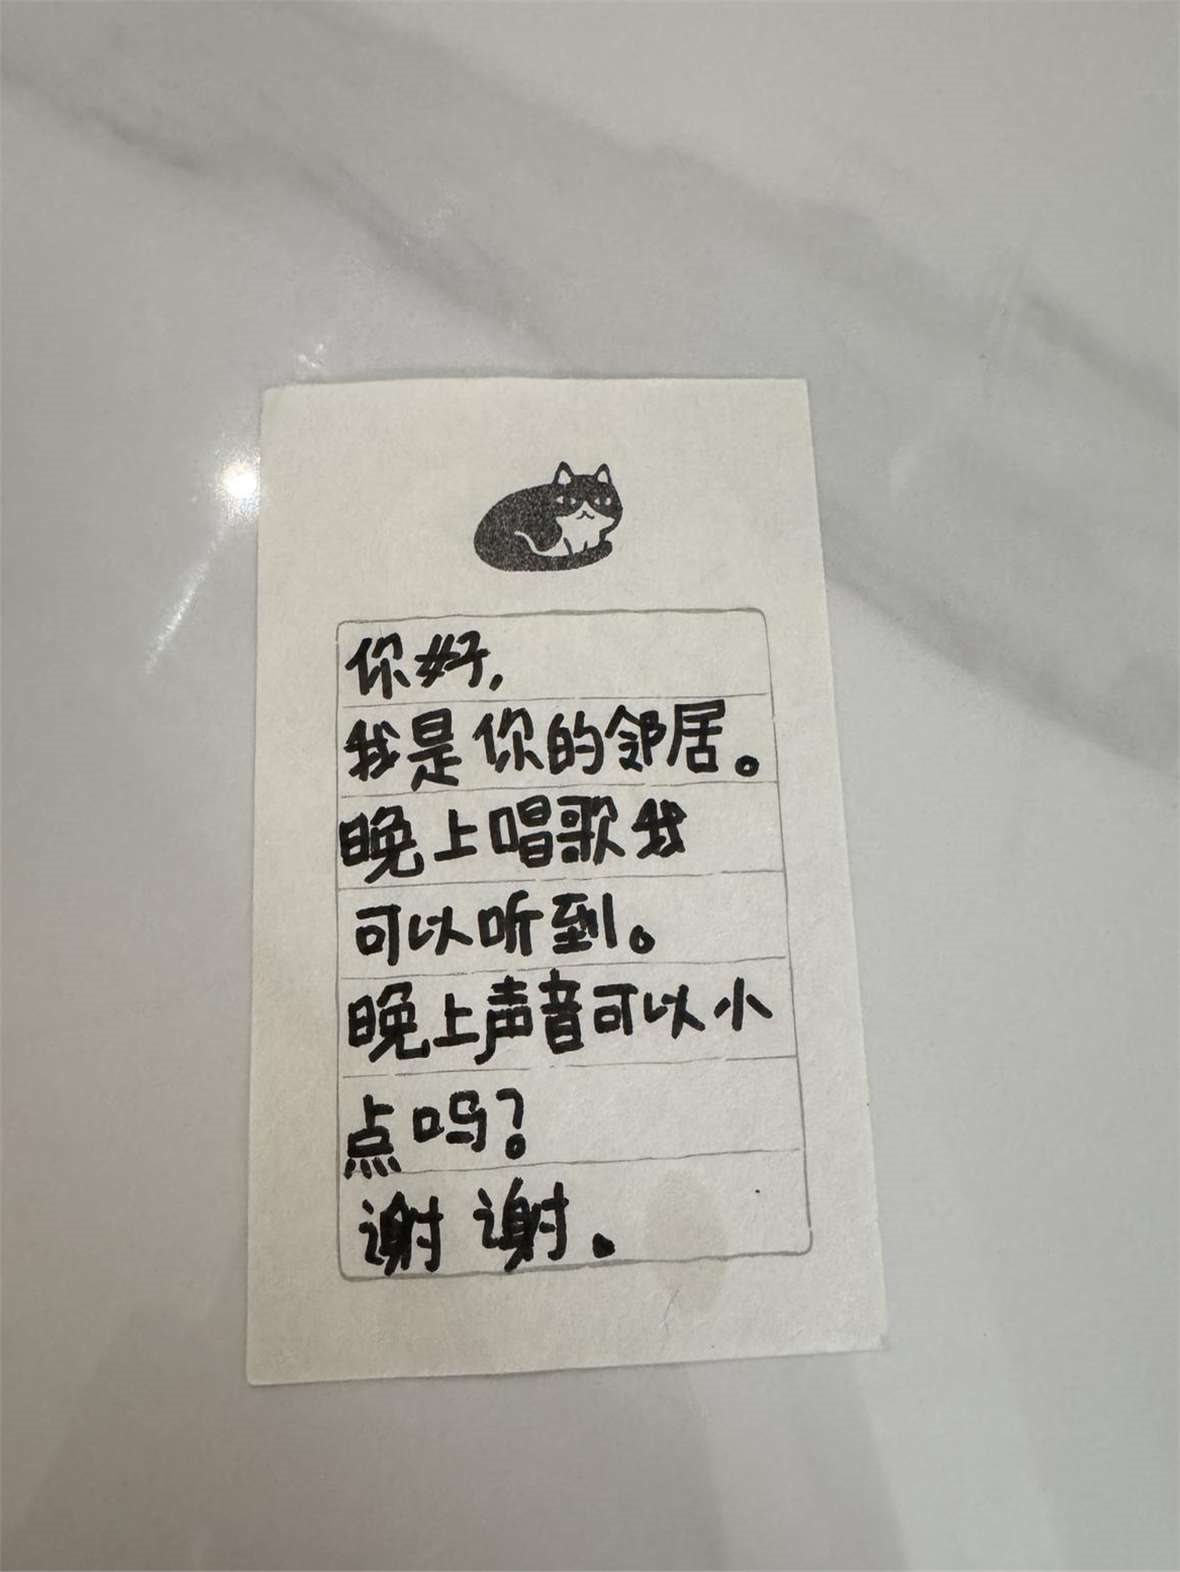 你好,
我是你的邻居。
晚上唱歌我
可以听到。
晚上声音可以小
点吗?
谢谢.